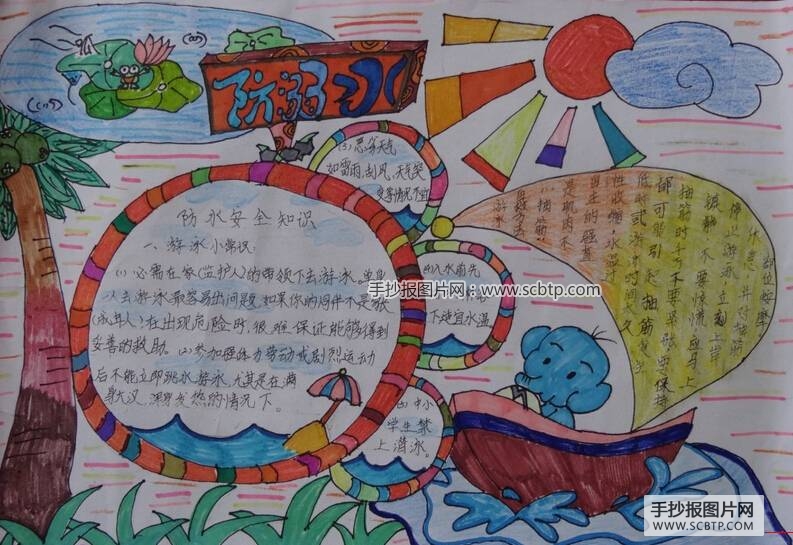 防溺水
防水安全知识
一、游泳小常识:
(1)必需在家(监护人)的带领下去游泳。单身
人去游泳最容易出问题,如果你的同伴不是家
(成年人)在出现危险时,很难保证能够得到
妥善的救助。(2)参加强体力劳动或剧烈运动
后不能立即跳水游泳,尤其是在满
身大汉,浑身发热的情况下。
(3)恶劣天气
如雷雨,刮风,天气突
变等情况不宜
游泳
入水前先
下适宜水温
中小
学生禁
上游泳。
抽筋
是肌肉不
自主的强直
性收缩,水温过
低时或游泳时间太久
都可能引起抽筋发生
抽筋时千万不要单慌,要保持
镇静,不要惊慌,应马上
停止游泳,立刻上岸
休息,并对抽筋
部位按摩
手抄报图片网:www.scbtp.com
手抄报图片网
WWW.SCBTP.COM